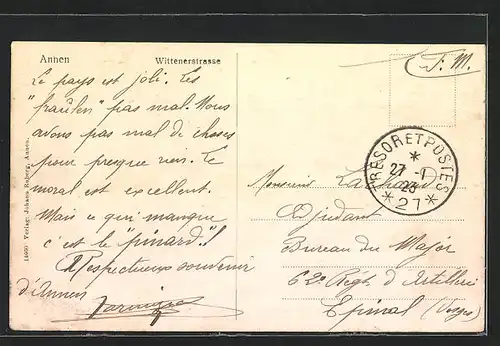 Annen Wittenerstrasse
Le pays est joli. Les
"fraulen" pas mal. Nous
avons pas mal de choses
pour presque rien. Le
moral est excellent.
Mais ce qui manque
c'est le "pinard"!
Respectueux souvenir
d'Annen
14660 Verlag: Johann Roberg, Annen.
F. M.
TRESOR ET POSTES
*
27 -1
23
* 27 *
Monsieur
Adjudant
Bureau du Major
62e Regt. d'Artillerie
Epinal (Vosges)